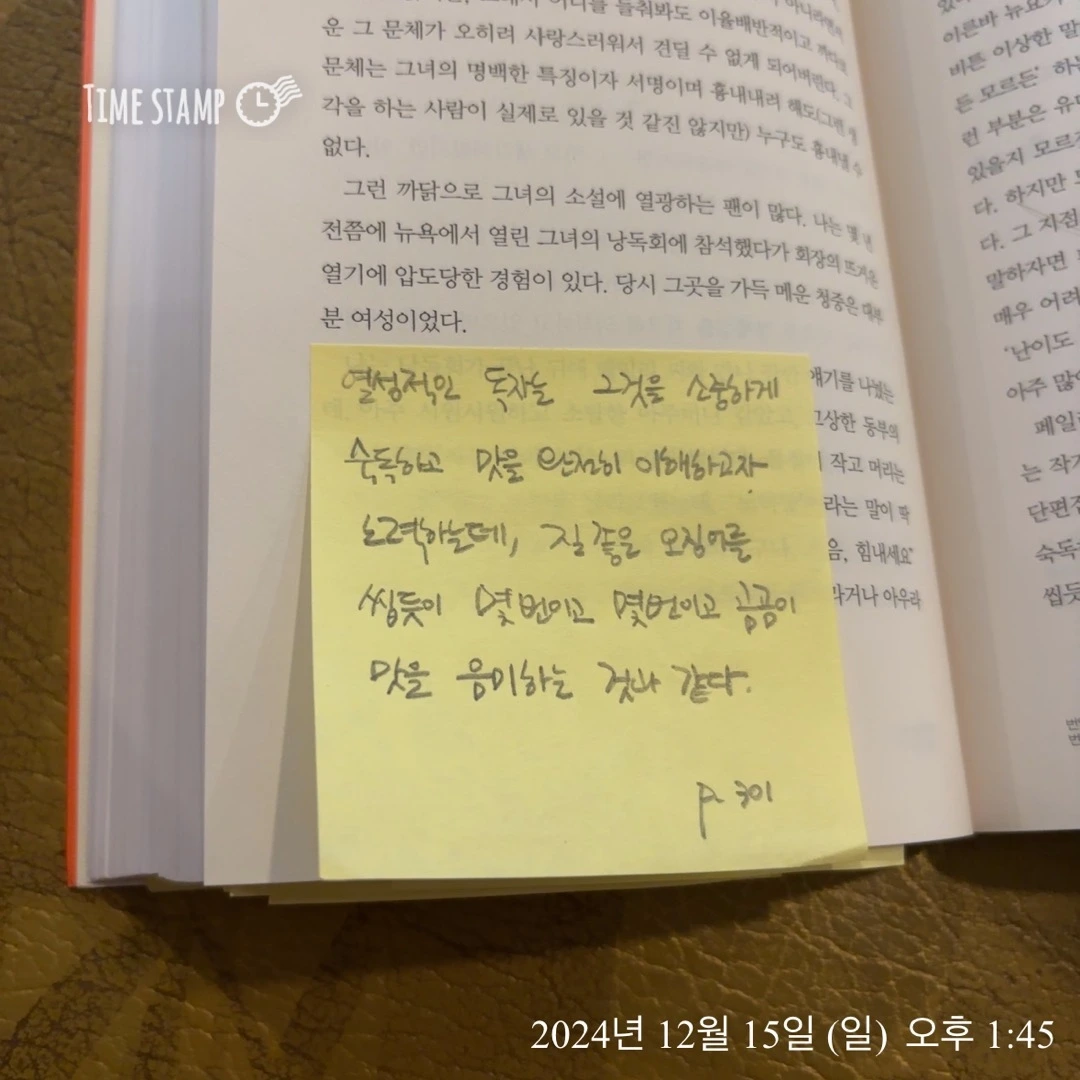 TIME STAMP
운 그 문체가 오히려 사랑스러워서 견딜 수 없게 되어버린다. 그
문체는 그녀의 명백한 특징이자 서명이며 흉내내려 해도(그런 생
각을 하는 사람이 실제로 있을 것 같진 않지만) 누구도 흉내낼 수
없다.
그런 까닭으로 그녀의 소설에 열광하는 팬이 많다. 나는 몇 년
전쯤에 뉴욕에서 열린 그녀의 낭독회에 참석했다가 회장의 뜨거운
열기에 압도당한 경험이 있다. 당시 그곳을 가득 메운 청중은 대부
분 여성이었다.
얘기를 나눴는
동부의
작고 머리는
라는 말이 딱
힘내세요"
라거나 아우라
열성적인 독자는 그것을 소중하게
숙독하고 맛을 완전히 이해하고자
노력하는데, 질 좋은 오징어를
씹듯이 몇번이고 몇번이고 곰곰이
맛을 음미하는 것과 같다.
p. 301
이른바
바른 이상한 말
든 모르든' 하는
런 부분은
있을지
다. 하지만
다. 그 지점
말하자면
매우
'난이도
아주
는
2024년 12월 15일 (일) 오후 1:45